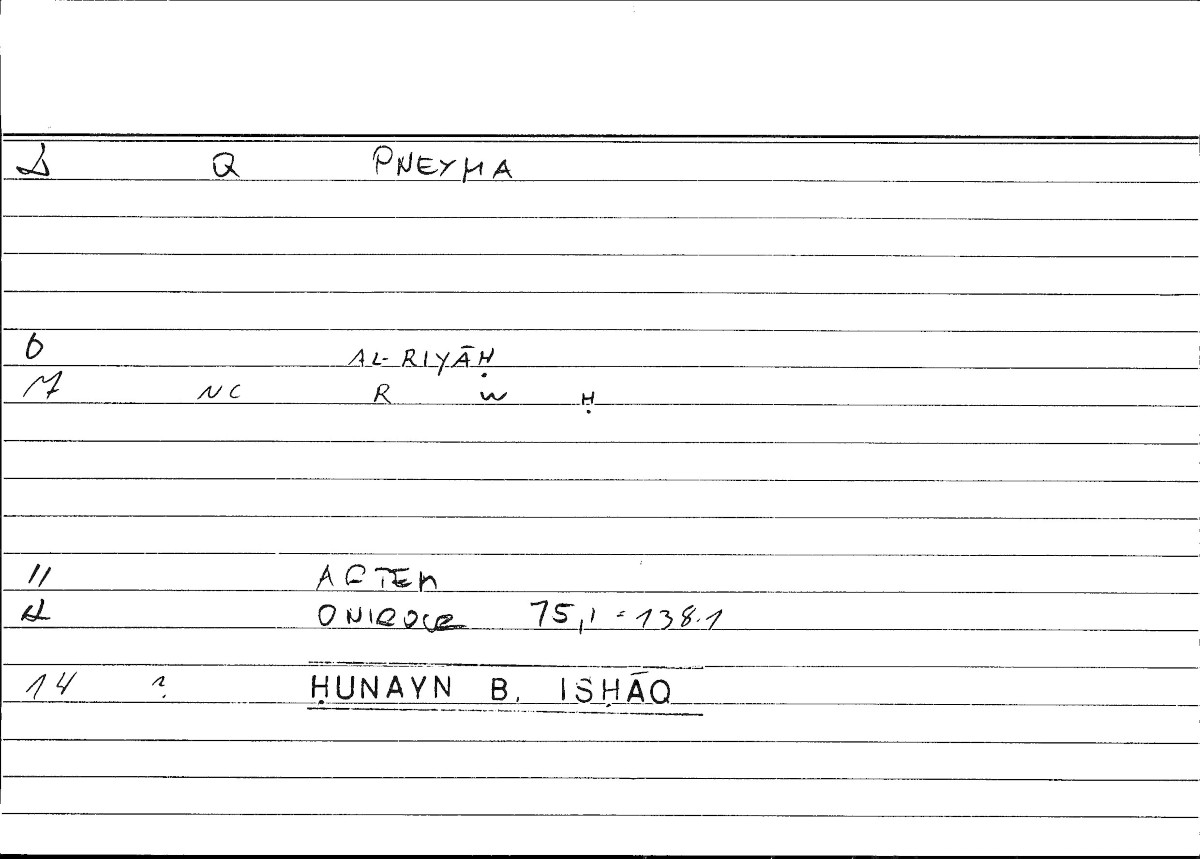 Q PNEYMA
AL-RIYĀḤ
NC R W Ḥ
11 ARTEM
ONIROCR 75,1 = 138.1
14 ḤUNAYN B. ISḤĀQ